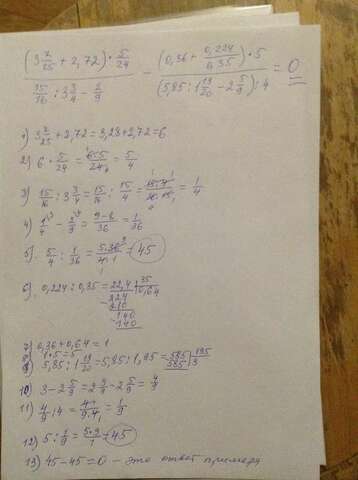 (3 7/25 + 2,72) · 5/24 / 15/16 : 3 3/4 − 2/9 − (0,36 + 0,224/0,35) · 5 / (5,85 : 1 19/20 − 2 5/9) : 4 = 0
1) 3 7/25 + 2,72 = 3,28 + 2,72 = 6
2) 6 · 5/24 = 6·5/24 = 5/4
3) 15/16 : 3 3/4 = 15/16 : 15/4 = 15·4/16·15 = 1/4
4) 1/4 − 2/9 = 9−8/36 = 1/36
5) 5/4 : 1/36 = 5·36/4·1 = 45
6) 0,224 : 0,35 = 22,4 35
224 0,64
210
140
140
7) 0,36 + 0,64 = 1
8) 1·5 = 5
9) 5,85 : 1 19/20 = 5,85 : 1,95 = 585 195
585 3
10) 3 − 2 5/9 = 2 9/9 − 2 5/9 = 4/9
11) 4/9 : 4 = 4·1/9·4 = 1/9
12) 5 : 1/9 = 5·9/1 = 45
13) 45 − 45 = 0 – это ответ примера